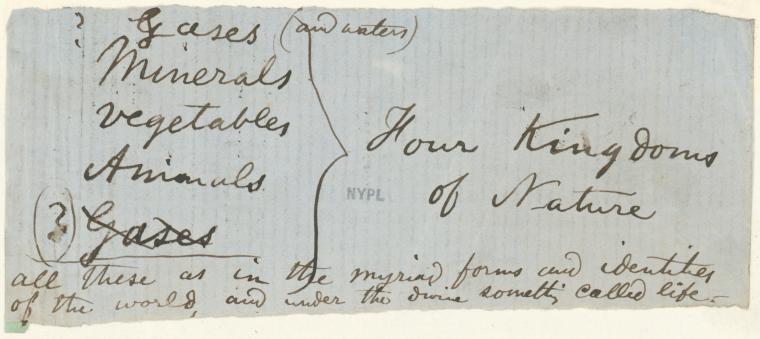 ? Gases (and waters)
Minerals
vegetables
Animals
? Gases
Four Kingdoms
of Nature
NYPL
all these as in the myriad forms and identities
of the world, and under the divine somethi called life.—